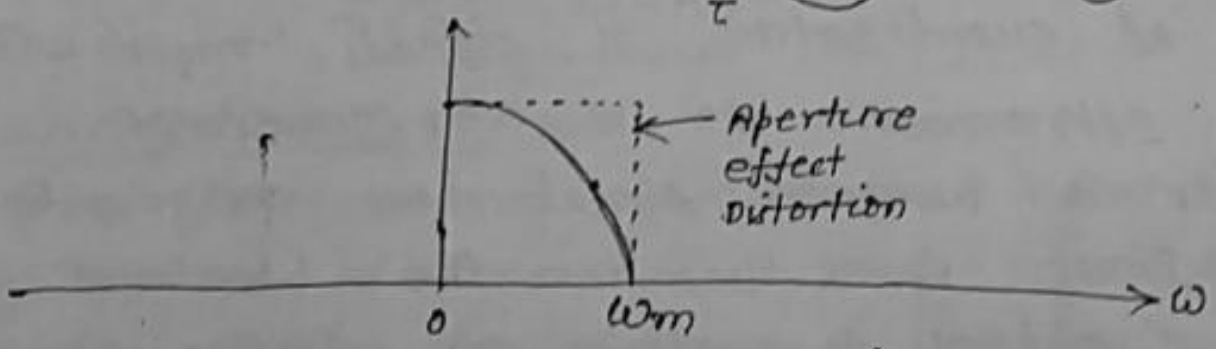 τ
Aperture
effect
Distortion
0
ωm
ω